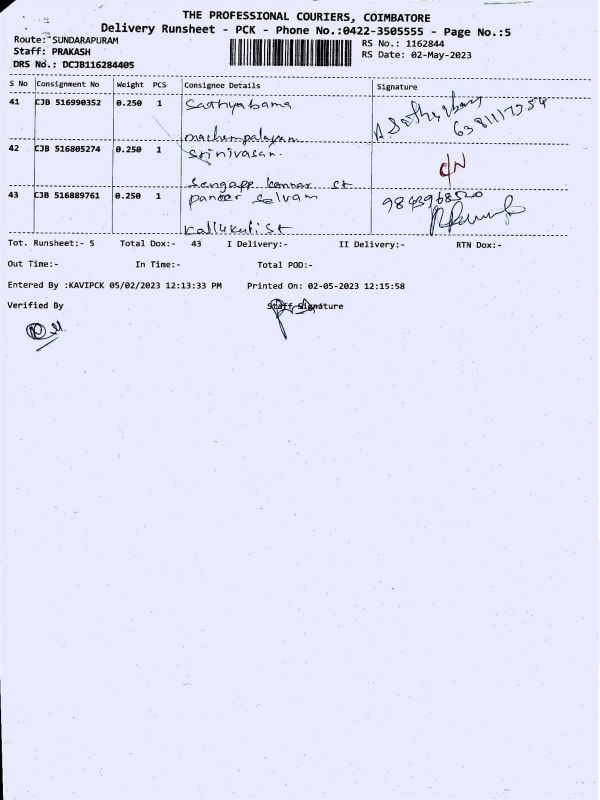 THE PROFESSIONAL COURIERS, COIMBATORE
Delivery Runsheet - PCK - Phone No.:0422-3505555 - Page No.:5
Route: SUNDARAPURAM
RS No.: 1162844
Staff: PRAKASH
RS Date: 02-May-2023
DRS No.: DCJB116284405
S No Consignment No Weight PCS Consignee Details Signature
41 CJB 516990352 0.250 1 Sathyabama
6381117254
machempalayam
42 CJB 516805274 0.250 1 Srinivasan.
St
43 CJB 516889761 0.250 1 paneer selvam
9843968520
St
Tot. Runsheet:- 5 Total Dox:- 43 I Delivery:- II Delivery:- RTN Dox:-
Out Time:- In Time:- Total POD:-
Entered By :KAVIPCK 05/02/2023 12:13:33 PM Printed On: 02-05-2023 12:15:58
Verified By Staff Signature